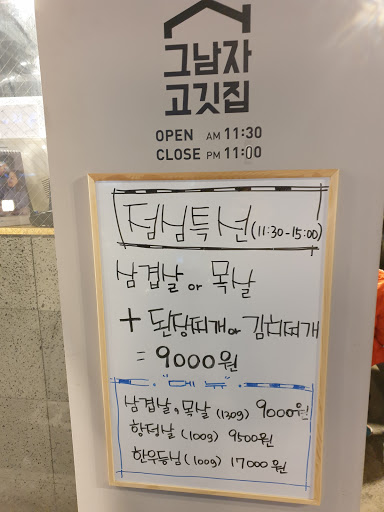 그남자
고깃집
OPEN AM 11:30
CLOSE PM 11:00
점심특선 (11:30-15:00)
삼겹살 or 목살
+ 된장찌개 or 김치찌개
= 9000원
"메뉴"
삼겹살, 목살 (130g) 9000원
항정살 (100g) 9500원
한우등심 (100g) 17000원